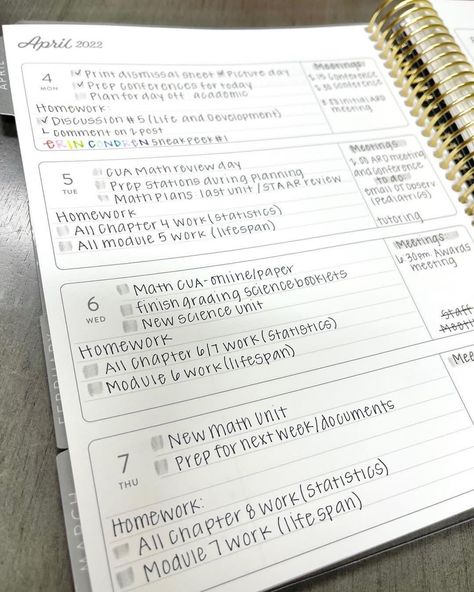 April 2022
4
MON
✓ Print dismissal sheet ✓ Picture day
✓ Prep conferences for today
Plan for day off academic
Homework:
✓ Discussion #5 (Life and Development)
↳ comment on 2 post
ERIN CONDREN sneak peek #1
Meetings:
conference
APRIL
5
TUE
CUA Math review day
Prep stations during Planning
Math Plans last unit / STAAR review
Homework
All Chapter 4 Work (Statistics)
All module 5 work (lifespan)
Meetings
ARD meeting
and conference
to do
email OT observ
(Pediatrics)
tutoring
6
WED
Math CUA-online/paper
finish grading science booklets
New Science unit
Homework
All Chapter 6/7 work (statistics)
Module 6 work (lifespan)
Meetings
6:30pm Awards
meeting
Staff
FEBRUARY
7
THU
New Math Unit
Prep for next week/documents
Homework:
All Chapter 8 work (statistics)
Module 7 work (lifespan)
MARCH